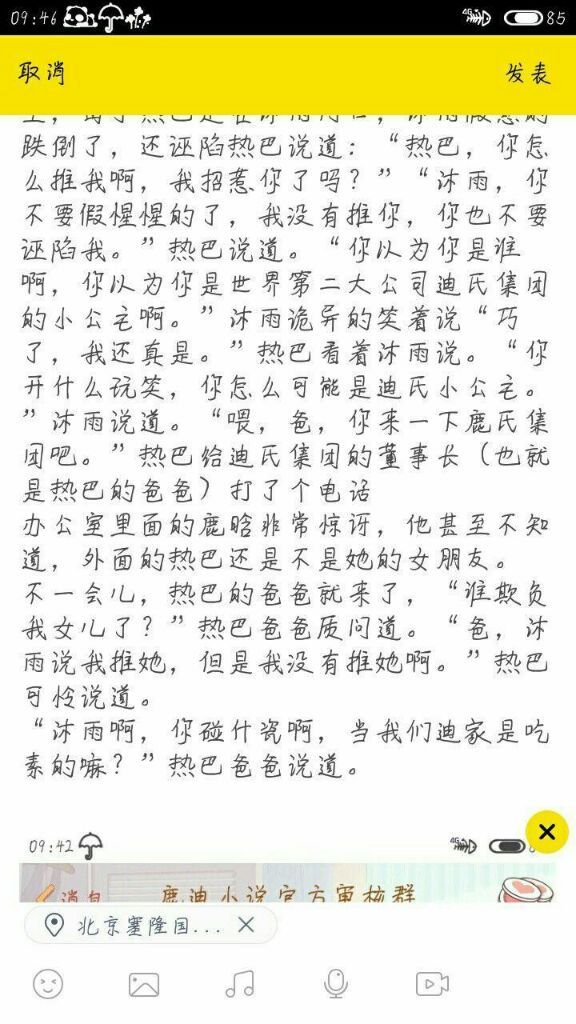 09:46
4G
85
取消
发表
跌倒了，还诬陷热巴说道：“热巴，你怎
么推我啊，我招惹你了吗？”“沐雨，你
不要假惺惺的了，我没有推你，你也不要
诬陷我。”热巴说道。“你以为你是谁
啊，你以为你是世界第二大公司迪氏集团
的小公主啊。”沐雨诡异的笑着说“巧
了，我还真是。”热巴看着沐雨说。“你
开什么玩笑，你怎么可能是迪氏小公主。
”沐雨说道。“喂，爸，你来一下鹿氏集
团吧。”热巴给迪氏集团的董事长（也就
是热巴的爸爸）打了个电话
办公室里面的鹿晗非常惊讶，他甚至不知
道，外面的热巴还是不是她的女朋友。
不一会儿，热巴的爸爸就来了，“谁欺负
我女儿了？”热巴爸爸质问道。“爸，沐
雨说我推她，但是我没有推她啊。”热巴
可怜说道。
“沐雨啊，你碰什瓷啊，当我们迪家是吃
素的嘛？”热巴爸爸说道。
09:42
4G
消息
鹿迪小说官方审核群
北京塞隆国...